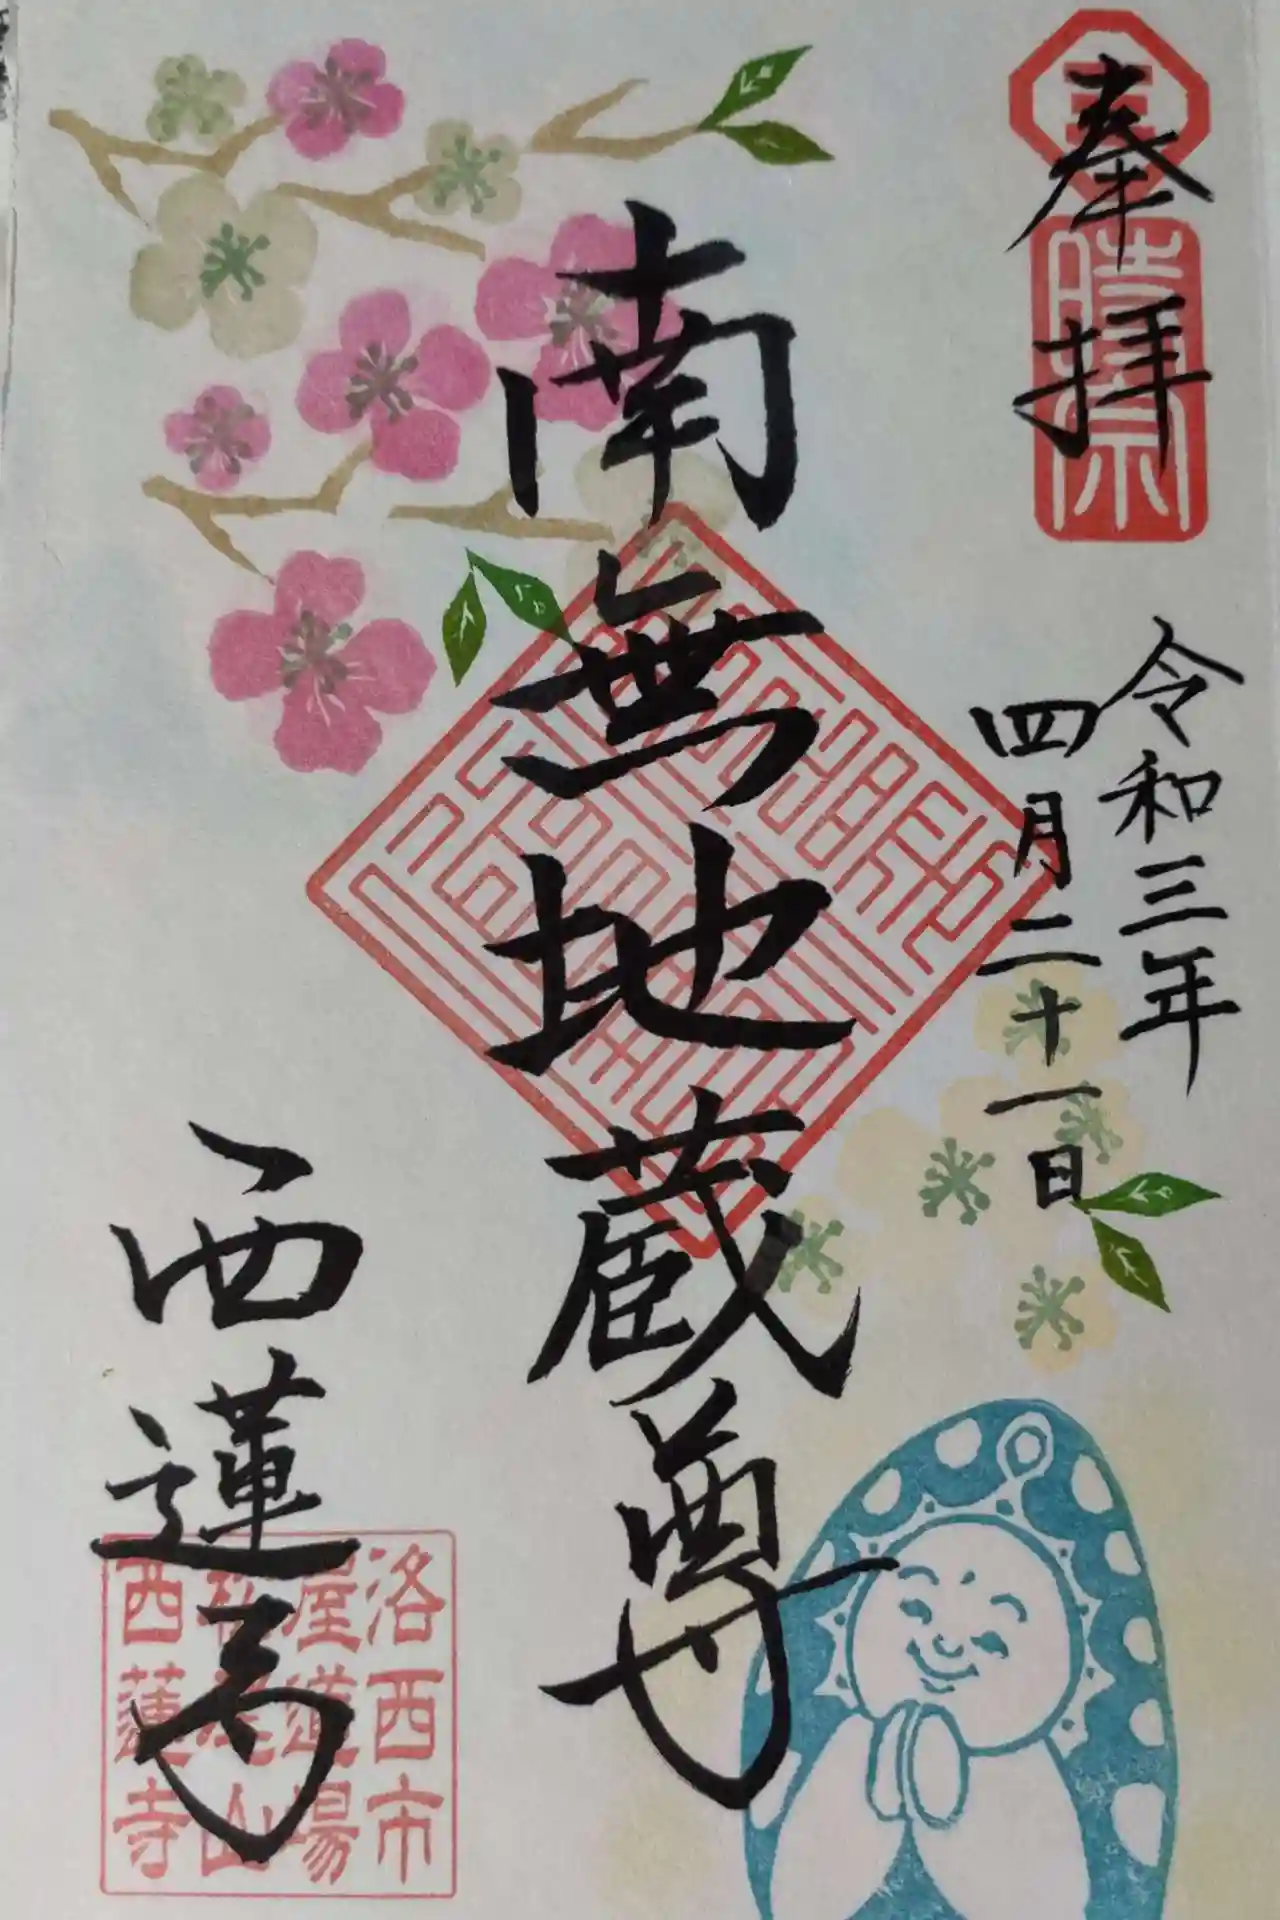 奉拝
時宗
令和三年
四月二十一日
南無地蔵尊
西蓮寺
洛西市
屋道場
山
西蓮寺